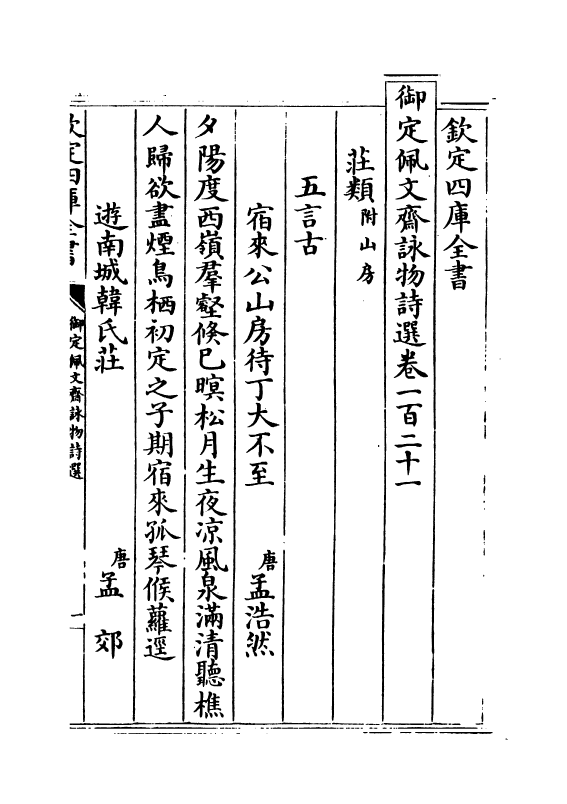 欽定四庫全書
御定佩文齋詠物詩選卷一百二十一
莊類附山房
五言古
宿來公山房待丁大不至　唐孟浩然
夕陽度西嶺羣壑倏已暝松月生夜凉風泉滿清聽樵
人歸欲盡煙鳥栖初定之子期宿來孤琴候蘿逕
遊南城韓氏莊　唐孟郊
欽定四庫全書
御定佩文齋詠物詩選
一